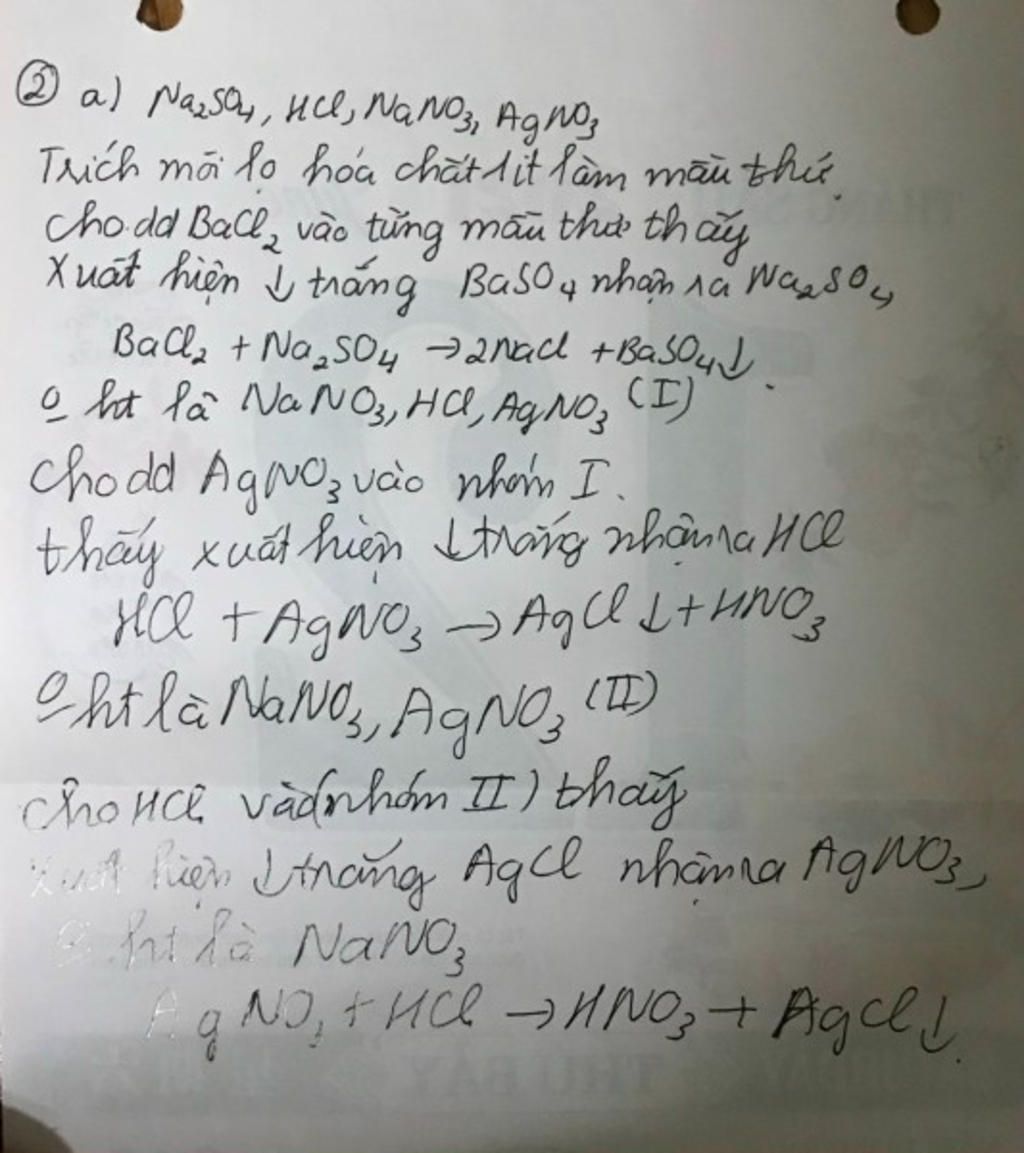 ② a) Na₂SO₄, HCl, NaNO₃, AgNO₃
Trích mỗi lọ hóa chất 1 ít làm mẫu thử.
Cho dd BaCl₂ vào từng mẫu thử thấy
Xuất hiện ↓ trắng BaSO₄ nhận ra Na₂SO₄
BaCl₂ + Na₂SO₄ → 2NaCl + BaSO₄↓.
O ht là NaNO₃, HCl, AgNO₃ (I)
Cho dd AgNO₃ vào nhóm I.
thấy xuất hiện ↓ trắng nhận ra HCl
HCl + AgNO₃ → AgCl ↓ + HNO₃
O ht là NaNO₃, AgNO₃ (II)
Cho HCl vào (nhóm II) thấy
xuất hiện ↓ trắng AgCl nhận ra AgNO₃,
O ht là NaNO₃
AgNO₃ + HCl → HNO₃ + AgCl↓.
THỨ BẢY